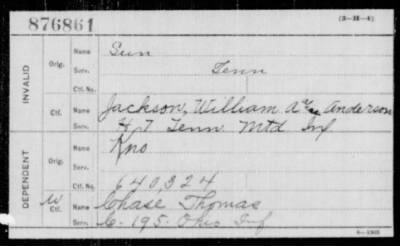 876861 (3-II-4)
INVALID
Orig.
Name Sun
Serv. Tenn
Ctf. No.
Ctf.
Name Jackson, William Anderson
Serv. H 7 Tenn Mtd Inf
DEPENDENT
Orig.
Name Kno
Serv.
Ctf. No. 640,324
W Ctf.
Name Chase Thomas
Serv. C-195-Ohio Inf